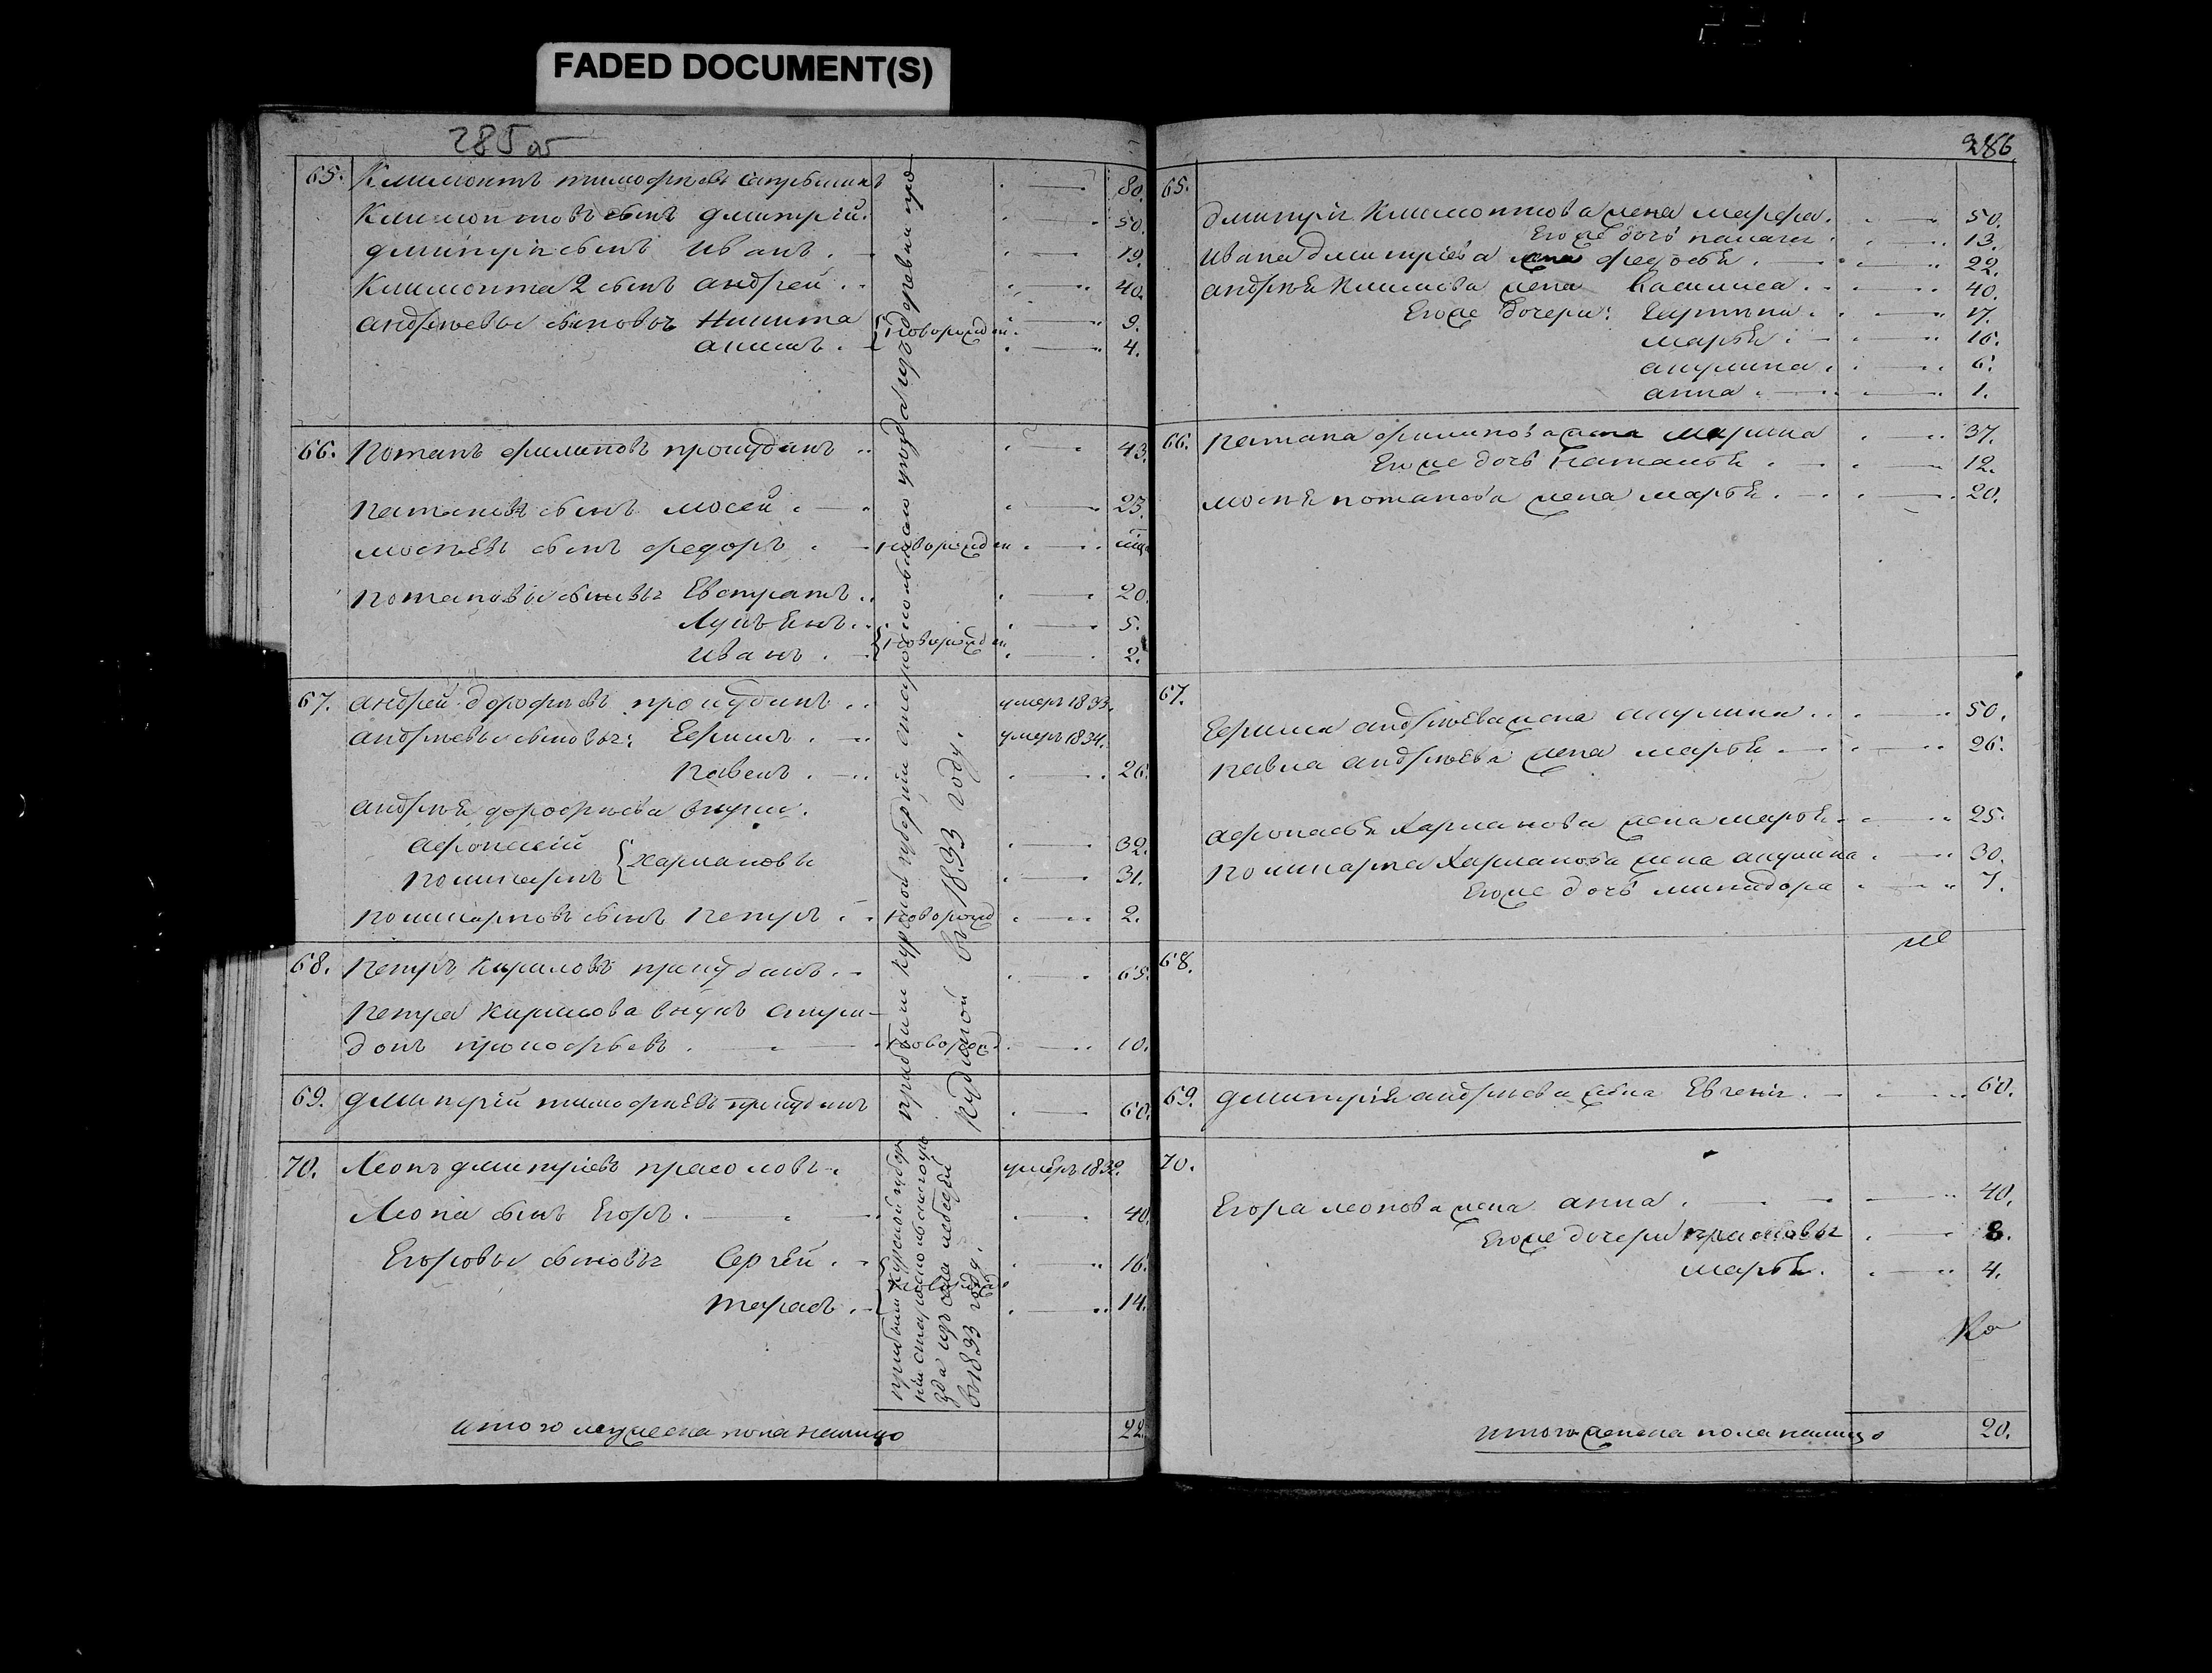 FADED DOCUMENT(S)
285 об
65. Климонтъ тимофѣевъ 80.
Климонтовъ сынъ дмитрій. 50.
дмитрія сынъ Иванъ. 19.
Климонта 2 сынъ андрей. 40.
андрѣевы сыновья Никита 9.
новорожден.
акимъ. 4.
66. Потапъ филиповъ прокудинъ 43.
Потаповъ сынъ мосей. 23.
мосѣевъ сынъ федоръ. новорожден
Потаповы сыновья Евстратъ 20.
Лукьянъ. 5.
новорожден
Иванъ. 2.
67. андрей дорофѣевъ прокудинъ умеръ 1833.
андрѣевы сыновья: Ефимъ. умеръ 1834.
Павелъ. 26.
андрѣя дорофѣева внуки.
афонасій 32.
Харлановы
поликарпъ 31.
поликарповъ сынъ Петръ новорожд 2.
68. Петръ Кириловъ прокудинъ. 65.
Петра Кирилова внукъ спири-
донъ прокофьевъ. новорожд 10.
69. дмитрій тимофѣевъ прокудинъ 60.
70. Леонъ дмитріевъ прасоловъ. умеръ 1832.
Леона сынъ Егоръ. 40.
Егоровы сыновья Сергѣй. 16.
тарасъ. 14.
прибыли курской губерніи старооскольского уѣзда изъ деревни
въ 1833 году.
прибыли курской губер
ніи старооскольского уѣ
зда изъ села лебедей
въ 1833 году.
итого мужеска пола налицо 22.
286
65.
дмитрія Климонтова жена марфа. 50.
Его же дочь пелагея 13.
Ивана дмитріева жена федосья. 22.
андрѣя Климова жена Василиса. 40.
Его же дочери: 17.
марья. 16.
акулина. 6.
анна. 1.
66. Потапа филипова жена марина 37.
Его же дочь Наталья. 12.
мосѣя потапова жена марья. 20.
67.
Ефима андрѣева жена акулина. 50.
Павла андрѣева жена марья 26.
афонасья Харланова жена марья 25.
Поликарпа Харланова жена акулина. 30.
Его же дочь минадора 7.
68.
69. дмитрія андрѣева жена Евгенія. 60.
70.
Егора леонова жена анна. 40.
Его же дочери прасковья 8.
марья. 4.
итого женска пола налицо 20.